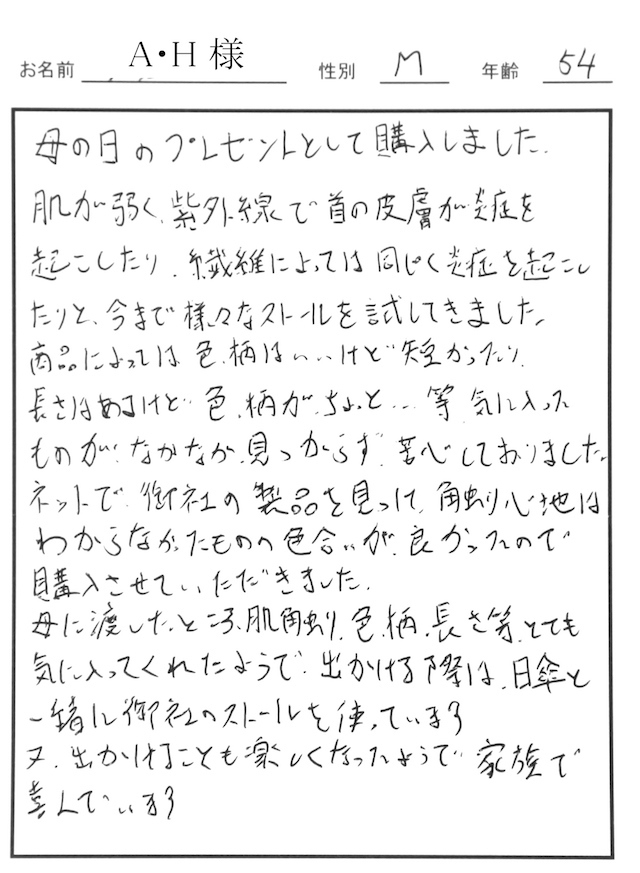 お名前 A・H 様 性別 M 年齢 54
母の日のプレゼントとして購入しました.
肌が弱く、紫外線で首の皮膚が炎症を
起こしたり、繊維によっては同じく炎症を起こし
たりと、今まで様々なストールを試してきました。
商品によっては色、柄はいいけど短かったり、
長さはあるけど色、柄がちょっと…等、気に入った
ものがなかなか見つからず、苦心しておりました。
ネットで御社の製品を見つけ、触り心地は
わからなかったものの色合いが良かったので
購入させていただきました.
母に渡したところ、肌触り、色、柄、長さ等、とても
気に入ってくれたようで、出かける際は、日傘と
一緒に御社のストールを使っています
又、出かけることも楽しくなったようで家族で
喜んでいます